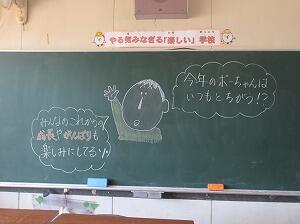 やる気みなぎる「楽しい」学校
今年のボーちゃんは
いつもとちがう!?
みんなのこれからの
成長とがんばりも
楽しみにしてるゾ